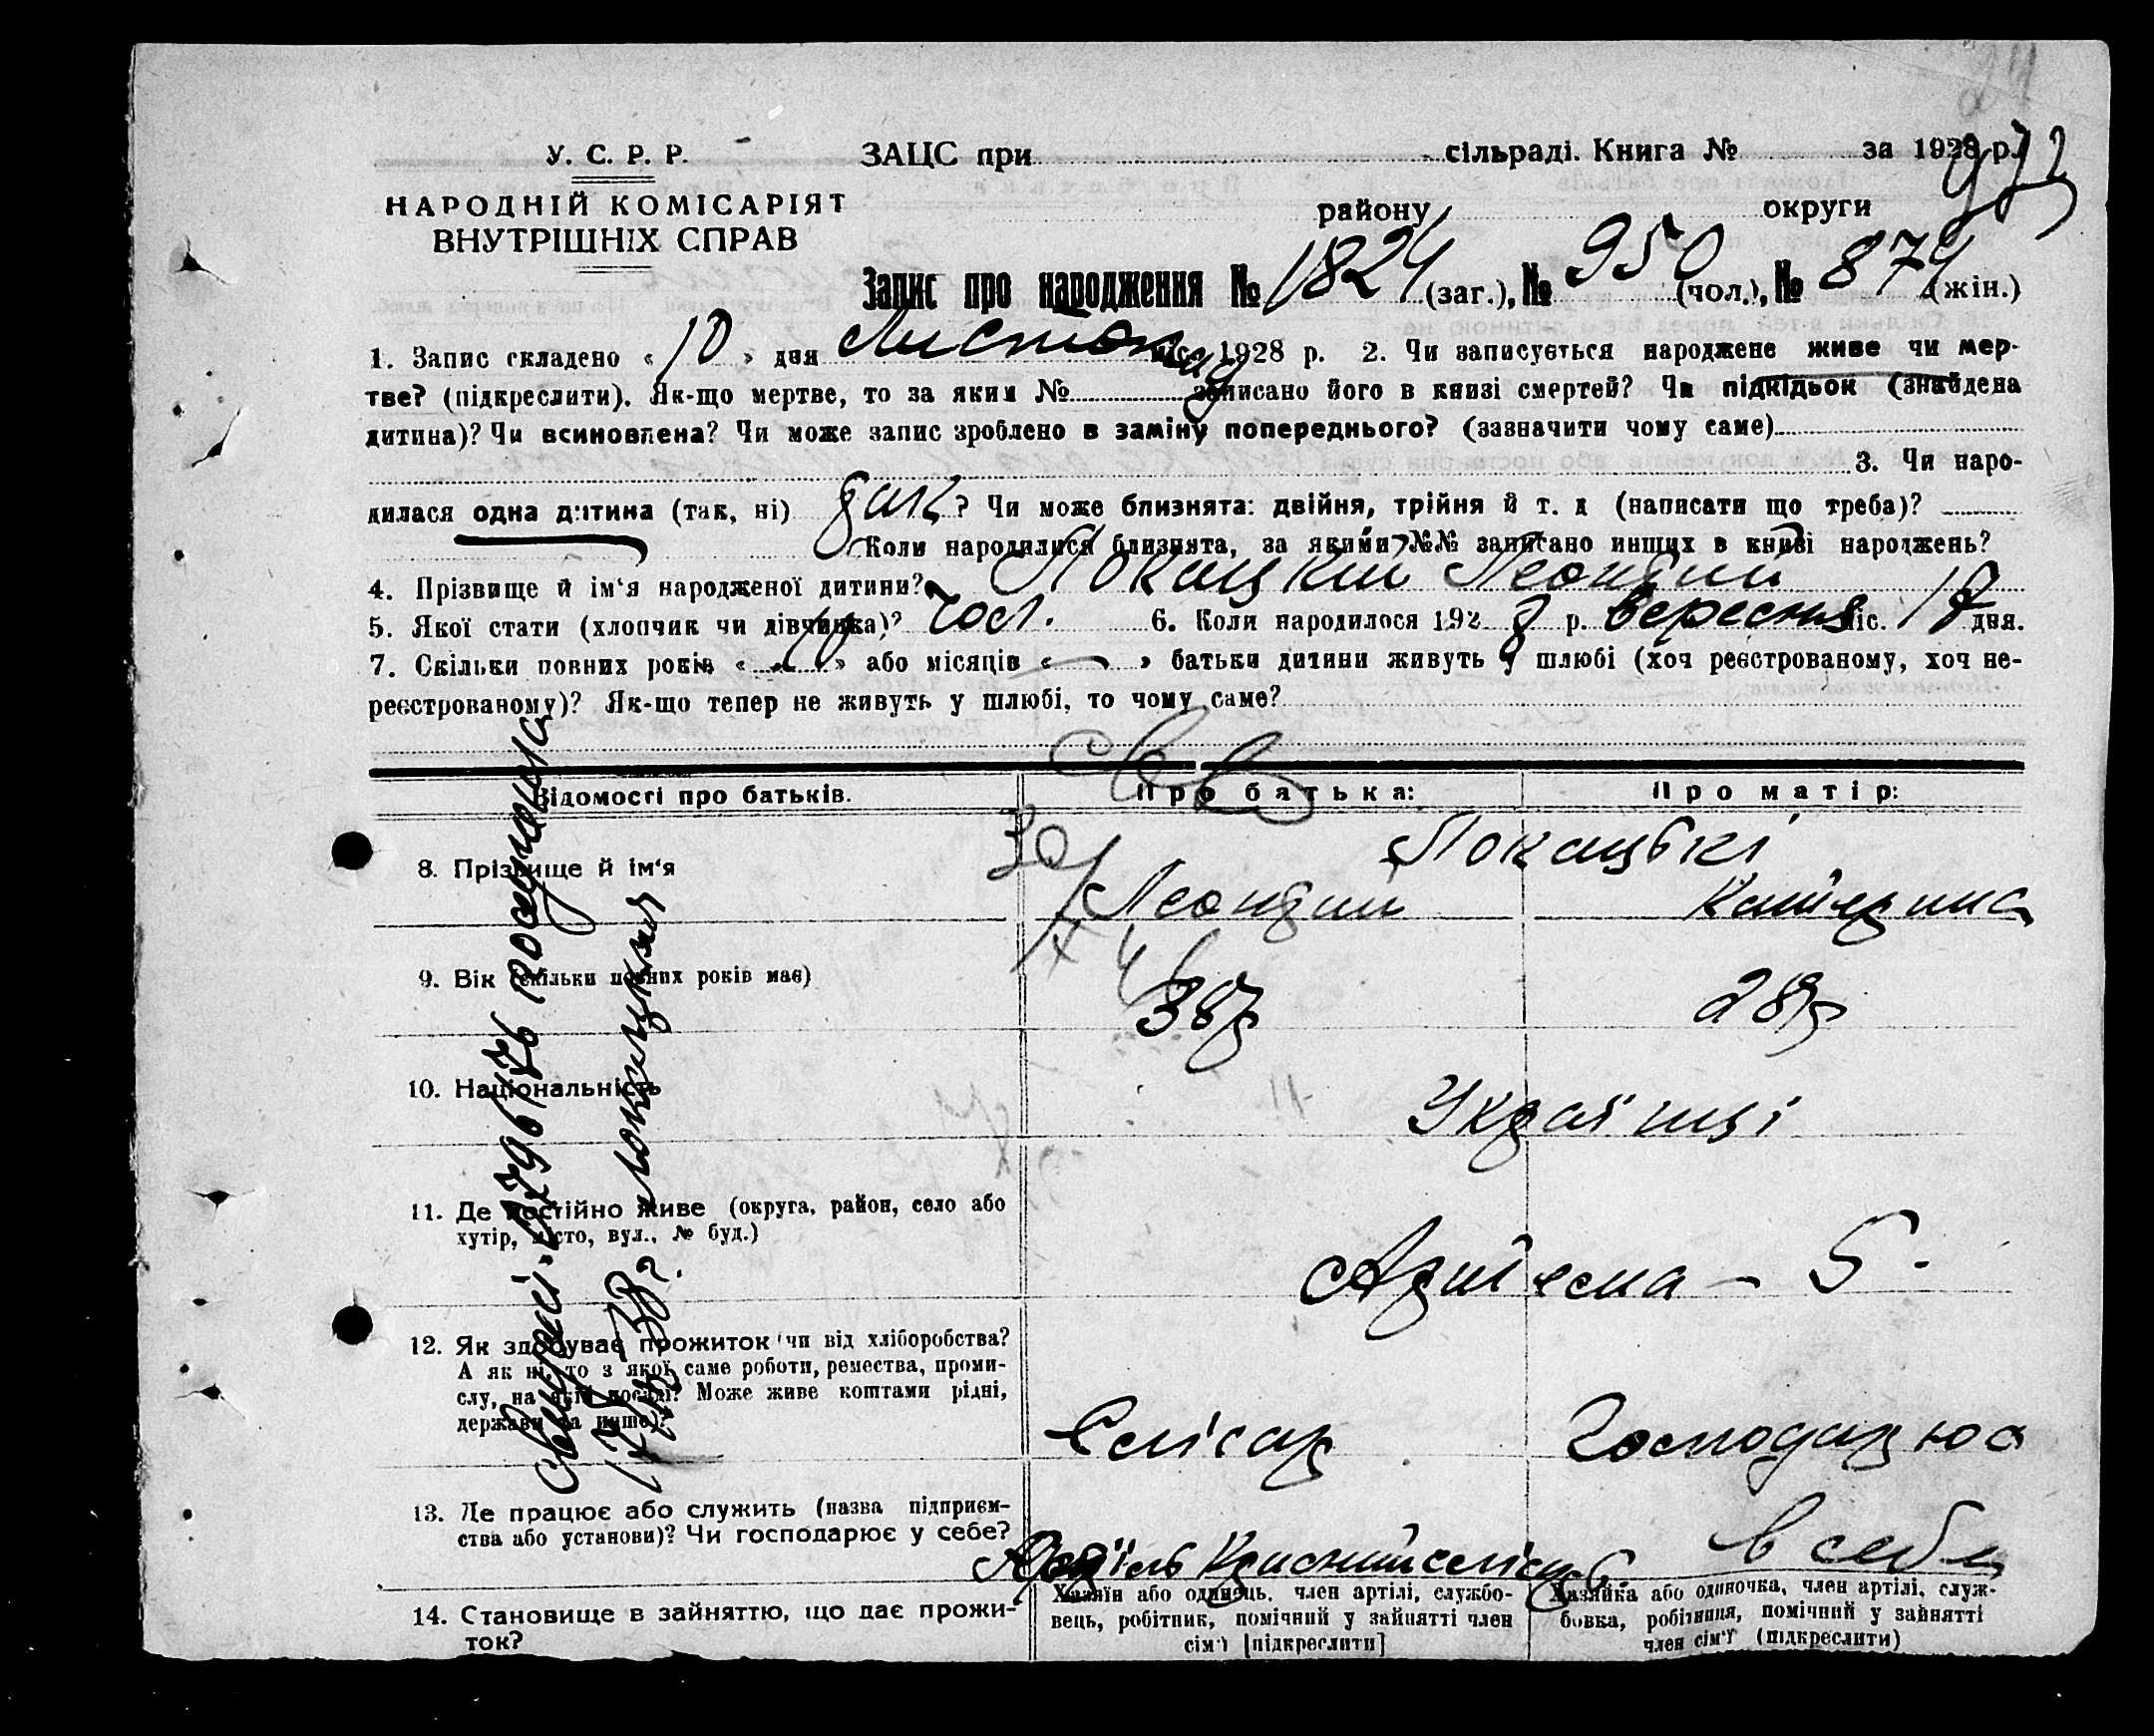 У. С. Р. Р.
ЗАЦС при сільраді. Книга № за 1928 р.
972
НАРОДНІЙ КОМІСАРІЯТ
ВНУТРІШНІХ СПРАВ
району округи
Запис про народження № 1824 (заг.), № 950 (чол.), № 874 (жін.)
1. Запис складено « 10 » дня Листопад міс. 1928 р. 2. Чи записується народжене живе чи мер-
тве? (підкреслити). Як-що мертве, то за яким № записано його в книзі смертей? Чи підкідьок (знайдена
дитина)? Чи всиновлена? Чи може запис зроблено в заміну попереднього? (зазначити чому саме)
3. Чи наро-
дилася одна дитина (так, ні) так? Чи може близнята: двійня, трійня й т. д (написати що треба)?
Коли народилися близнята, за якими №№ записано инших в книзі народжень?
4. Прізвище й ім‘я народженої дитини? Локацкий Леонтий
5. Якої стати (хлопчик чи дівчинка)? чол. 6. Коли народилося 192 8 р. вересня міс. 17 дня.
7. Скільки повних років « » або місяців « — » батьки дитини живуть у шлюбі (хоч реєстрованому, хоч не-
реєстрованому)? Як-що тепер не живуть у шлюбі, то чому саме?
Відомості про батьків.
Про батька:
Про матір:
8. Прізвище й ім‘я
Локацькі
Леонтий
Катерина
9. Вік (скільки повних років має)
38р
28р
10. Національність
Українці
11. Де постійно живе (округа, район, село або
хутір, місто, вул., № буд.)
Артьесна — 5
12. Як здобуває прожиток (чи від хліборобства?
А як ні, то з якої саме роботи, ремества, проми-
слу, на якій посаді? Може живе коштами рідні,
держави та инше)?
Слісар
Господарює
13. Де працює або служить (назва підприєм-
ства або установи)? Чи господарює у себе?
Артіль Красний
в себе
14. Становище в зайняттю, що дає прожи-
ток?
Хазяїн або одинець, член артілі, службо-
вець, робітник, помічний у зайнятті член
сім‘ї [підкреслити]
Хазяйка або одиночка, член артілі, служ-
бовка, робітниця, помічний у зайнятті
член сім‘ї (підкреслити)